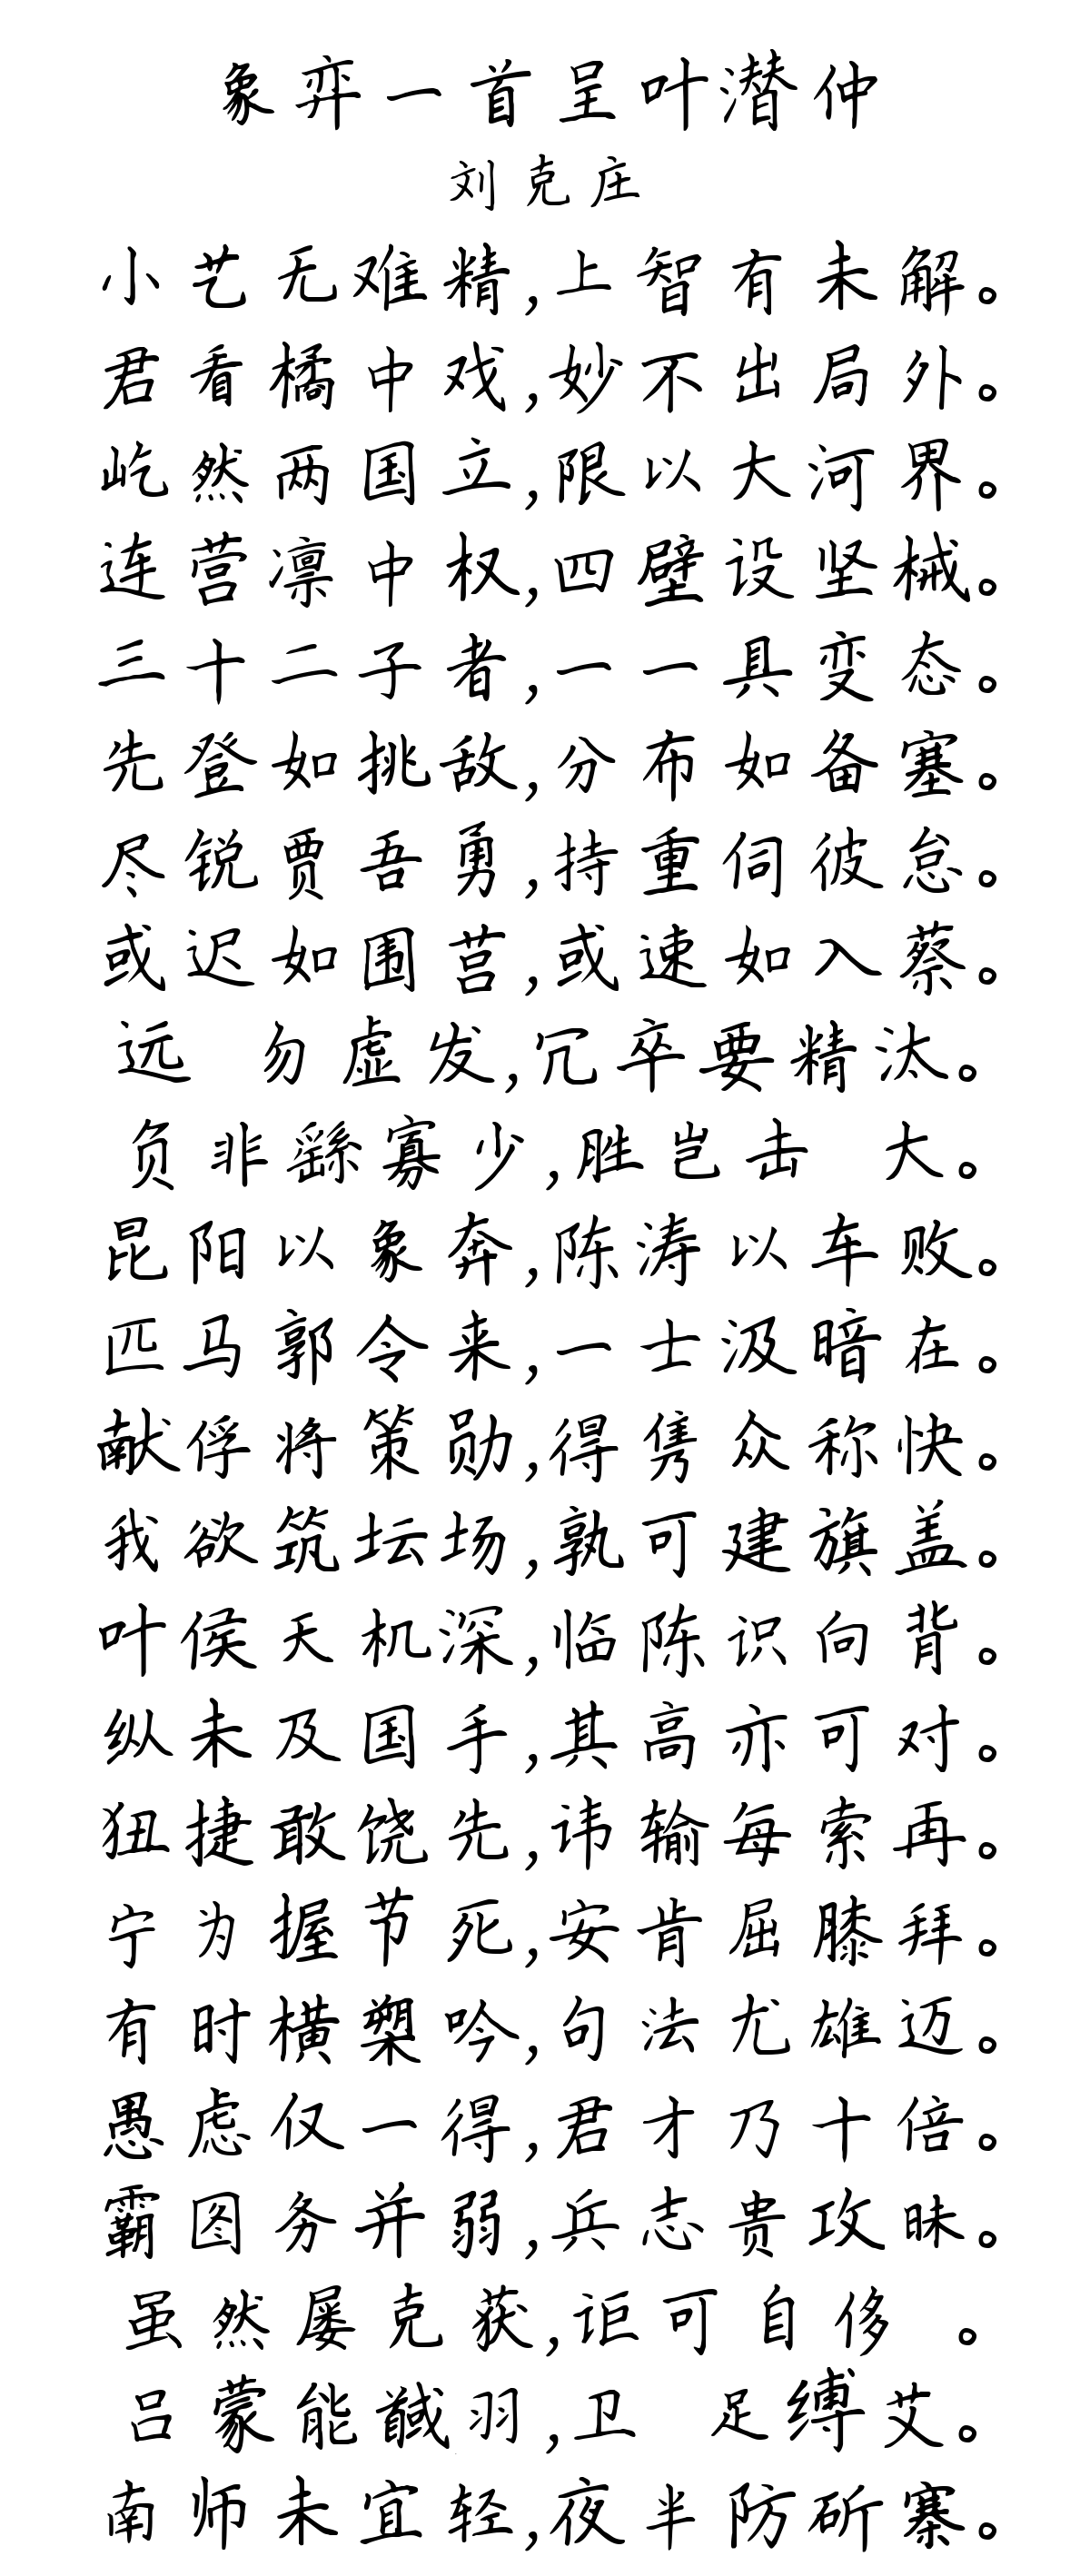 象弈一首呈叶潜仲
刘克庄
小艺无难精,上智有未解。
君看橘中戏,妙不出局外。
屹然两国立,限以大河界。
连营凛中权,四壁设坚械。
三十二子者,一一具变态。
先登如挑敌,分布如备塞。
尽锐贾吾勇,持重伺彼怠。
或迟如围莒,或速如入蔡。
远 勿虚发,冗卒要精汰。
负非繇寡少,胜岂击 大。
昆阳以象奔,陈涛以车败。
匹马郭令来,一士汲暗在。
献俘将策勋,得隽众称快。
我欲筑坛场,孰可建旗盖。
叶侯天机深,临陈识向背。
纵未及国手,其高亦可对。
狃捷敢饶先,讳输每索再。
宁为握节死,安肯屈膝拜。
有时横槊吟,句法尤雄迈。
愚虑仅一得,君才乃十倍。
霸图务并弱,兵志贵攻昧。
虽然屡克获,讵可自侈 。
吕蒙能馘羽,卫 足缚艾。
南师未宜轻,夜半防斫寨。